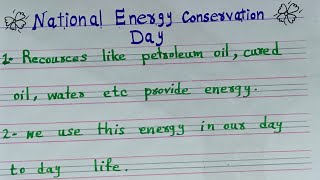 National Energy Conservation
Day
1- Recources like petroleum oil, cured
oil, water etc provide energy.
2- we use this energy in our day
to day life.